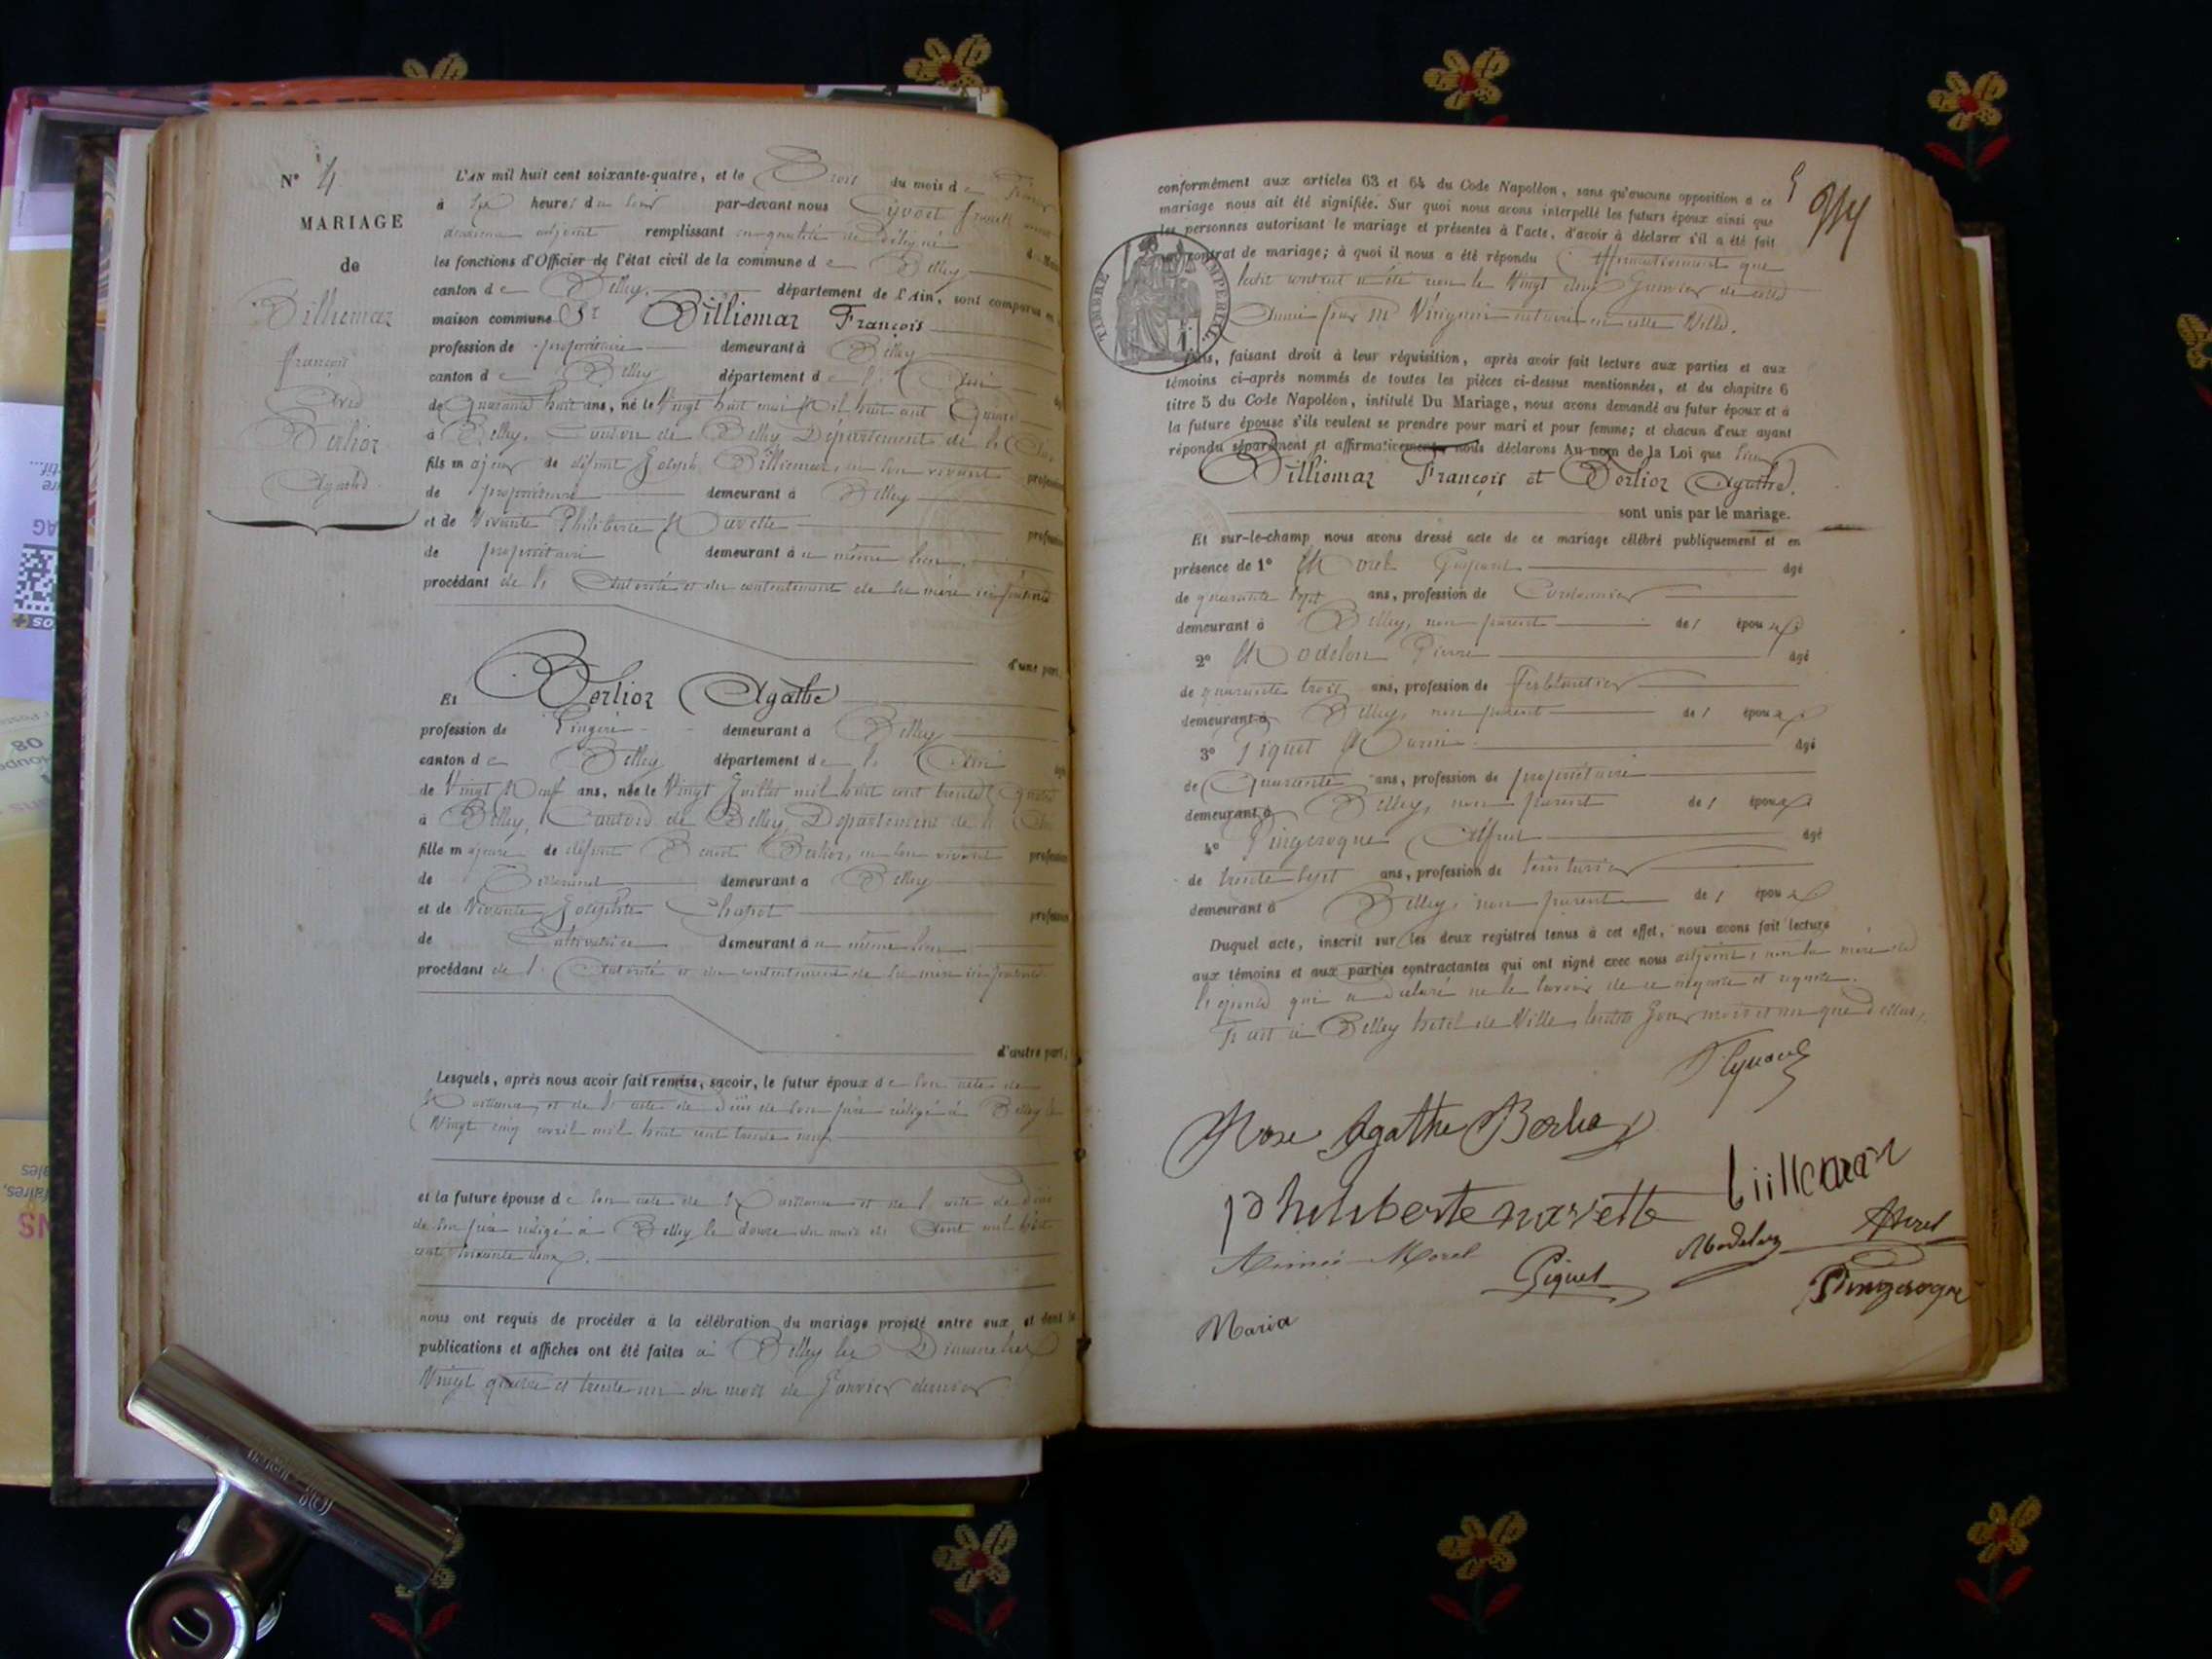 N° 4
MARIAGE
de
Billiemaz
François
Avec
Berlioz
Agathe
L'AN mil huit cent soixante-quatre, et le Trois du mois de Février
à heures du soir par-devant nous
deuxième adjoint remplissant en qualité de Délégué
les fonctions d'Officier de l'état civil de la commune de Belley
canton de Belley département de l'Ain, sont comparus en
maison commune Sr Billiemaz François
profession de propriétaire demeurant à Belley
canton de Belley département de l'Ain
de Quarante huit ans, né le Vingt huit mai Mil huit cent Quinze
à Belley, Canton de Belley, Département de l'Ain
fils majeur de défunt Joseph Billiemaz, en son vivant profession
de propriétaire demeurant à Belley
et de Vivante Philiberte Navette profession
de propriétaire demeurant au même lieu
procédant de l'Autorité et du contentement de sa mère ici présente
d'une part;
Et Berlioz Agathe
profession de Lingère demeurant à Belley
canton de Belley département de l'Ain
de Vingt Neuf ans, née le Vingt Juillet mil huit cent trente Quatre
à Belley, Canton de Belley, Département de l'Ain
fille majeure de défunt Benoit Berlioz, en son vivant profession
de demeurant à Belley
et de Vivante Josephte Chapot profession
de demeurant au même lieu
procédant de l'Autorité et du contentement de sa mère ici présente
d'autre part;
Lesquels, après nous avoir fait remise, savoir, le futur époux de son acte de
Naissance et de l'acte de Décès de son père rédigé à Belley le
Vingt cinq avril mil huit cent trente neuf
et la future épouse de son acte de Naissance et de l'acte de Décès
de son père rédigé à Belley le douze du mois de mil huit
cent
nous ont requis de procéder à la célébration du mariage projeté entre eux, et dont les
publications et affiches ont été faites à Belley les Dimanches
Vingt quatre et trente un du mois de Janvier dernier
5
conformément aux articles 63 et 64 du Code Napoléon, sans qu'aucune opposition à ce
mariage nous ait été signifiée. Sur quoi nous avons interpellé les futurs époux ainsi que
les personnes autorisant le mariage et présentes à l'acte, d'avoir à déclarer s'il a été fait
un contrat de mariage; à quoi il nous a été répondu Affirmativement que
ledit contrat a été reçu le Vingt deux Janvier de cette
Année par Me notaire en cette Ville.
TIMBRE IMPÉRIAL
Nous, faisant droit à leur réquisition, après avoir fait lecture aux parties et aux
témoins ci-après nommés de toutes les pièces ci-dessus mentionnées, et du chapitre 6
titre 5 du Code Napoléon, intitulé Du Mariage, nous avons demandé au futur époux et à
la future épouse s'ils veulent se prendre pour mari et pour femme; et chacun d'eux ayant
répondu séparément et affirmativement nous déclarons Au nom de la Loi que
Billiemaz François et Berlioz Agathe.
sont unis par le mariage.
Et sur-le-champ nous avons dressé acte de ce mariage célébré publiquement et en
présence de 1° Morel Gaspard âgé
de quarante sept ans, profession de Cordonnier
demeurant à Belley, non parent de l'époux
2° Modelon Pierre âgé
de quarante trois ans, profession de Ferblantier
demeurant à Belley, non parent de l'époux
3° Piguet Marie âgé
de Quarante ans, profession de propriétaire
demeurant à Belley, non parent de l'époux
4° Pingeroque Alfred âgé
de trente sept ans, profession de teinturier
demeurant à Belley, non parent de l'époux
Duquel acte, inscrit sur les deux registres tenus à cet effet, nous avons fait lecture
aux témoins et aux parties contractantes qui ont signé avec nous adjoint, non la mère de
l'épouse qui a déclaré ne le savoir de ce enquise et requise.
Fait à Belley hôtel de Ville, lesdits jour mois et an que dessus.
Rose Agathe Berlioz
philiberte navette billiemaz
Aimé Morel Piguet Modelon Morel
Pingeroque
Maria